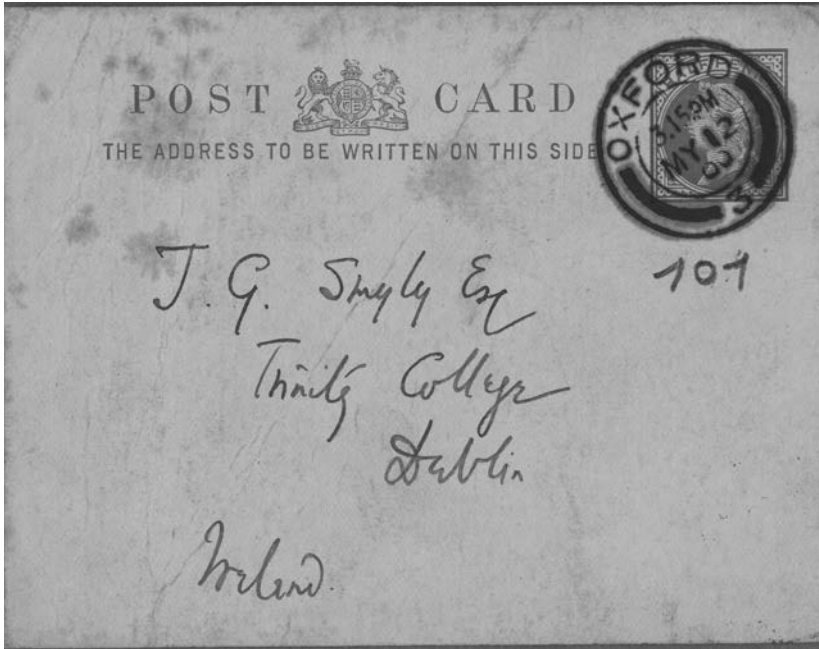 POST CARD
THE ADDRESS TO BE WRITTEN ON THIS SIDE
OXFORD
3.15PM
MY 12
3
101
J. G. Smyly Esq
Trinity College
Dublin
Ireland.